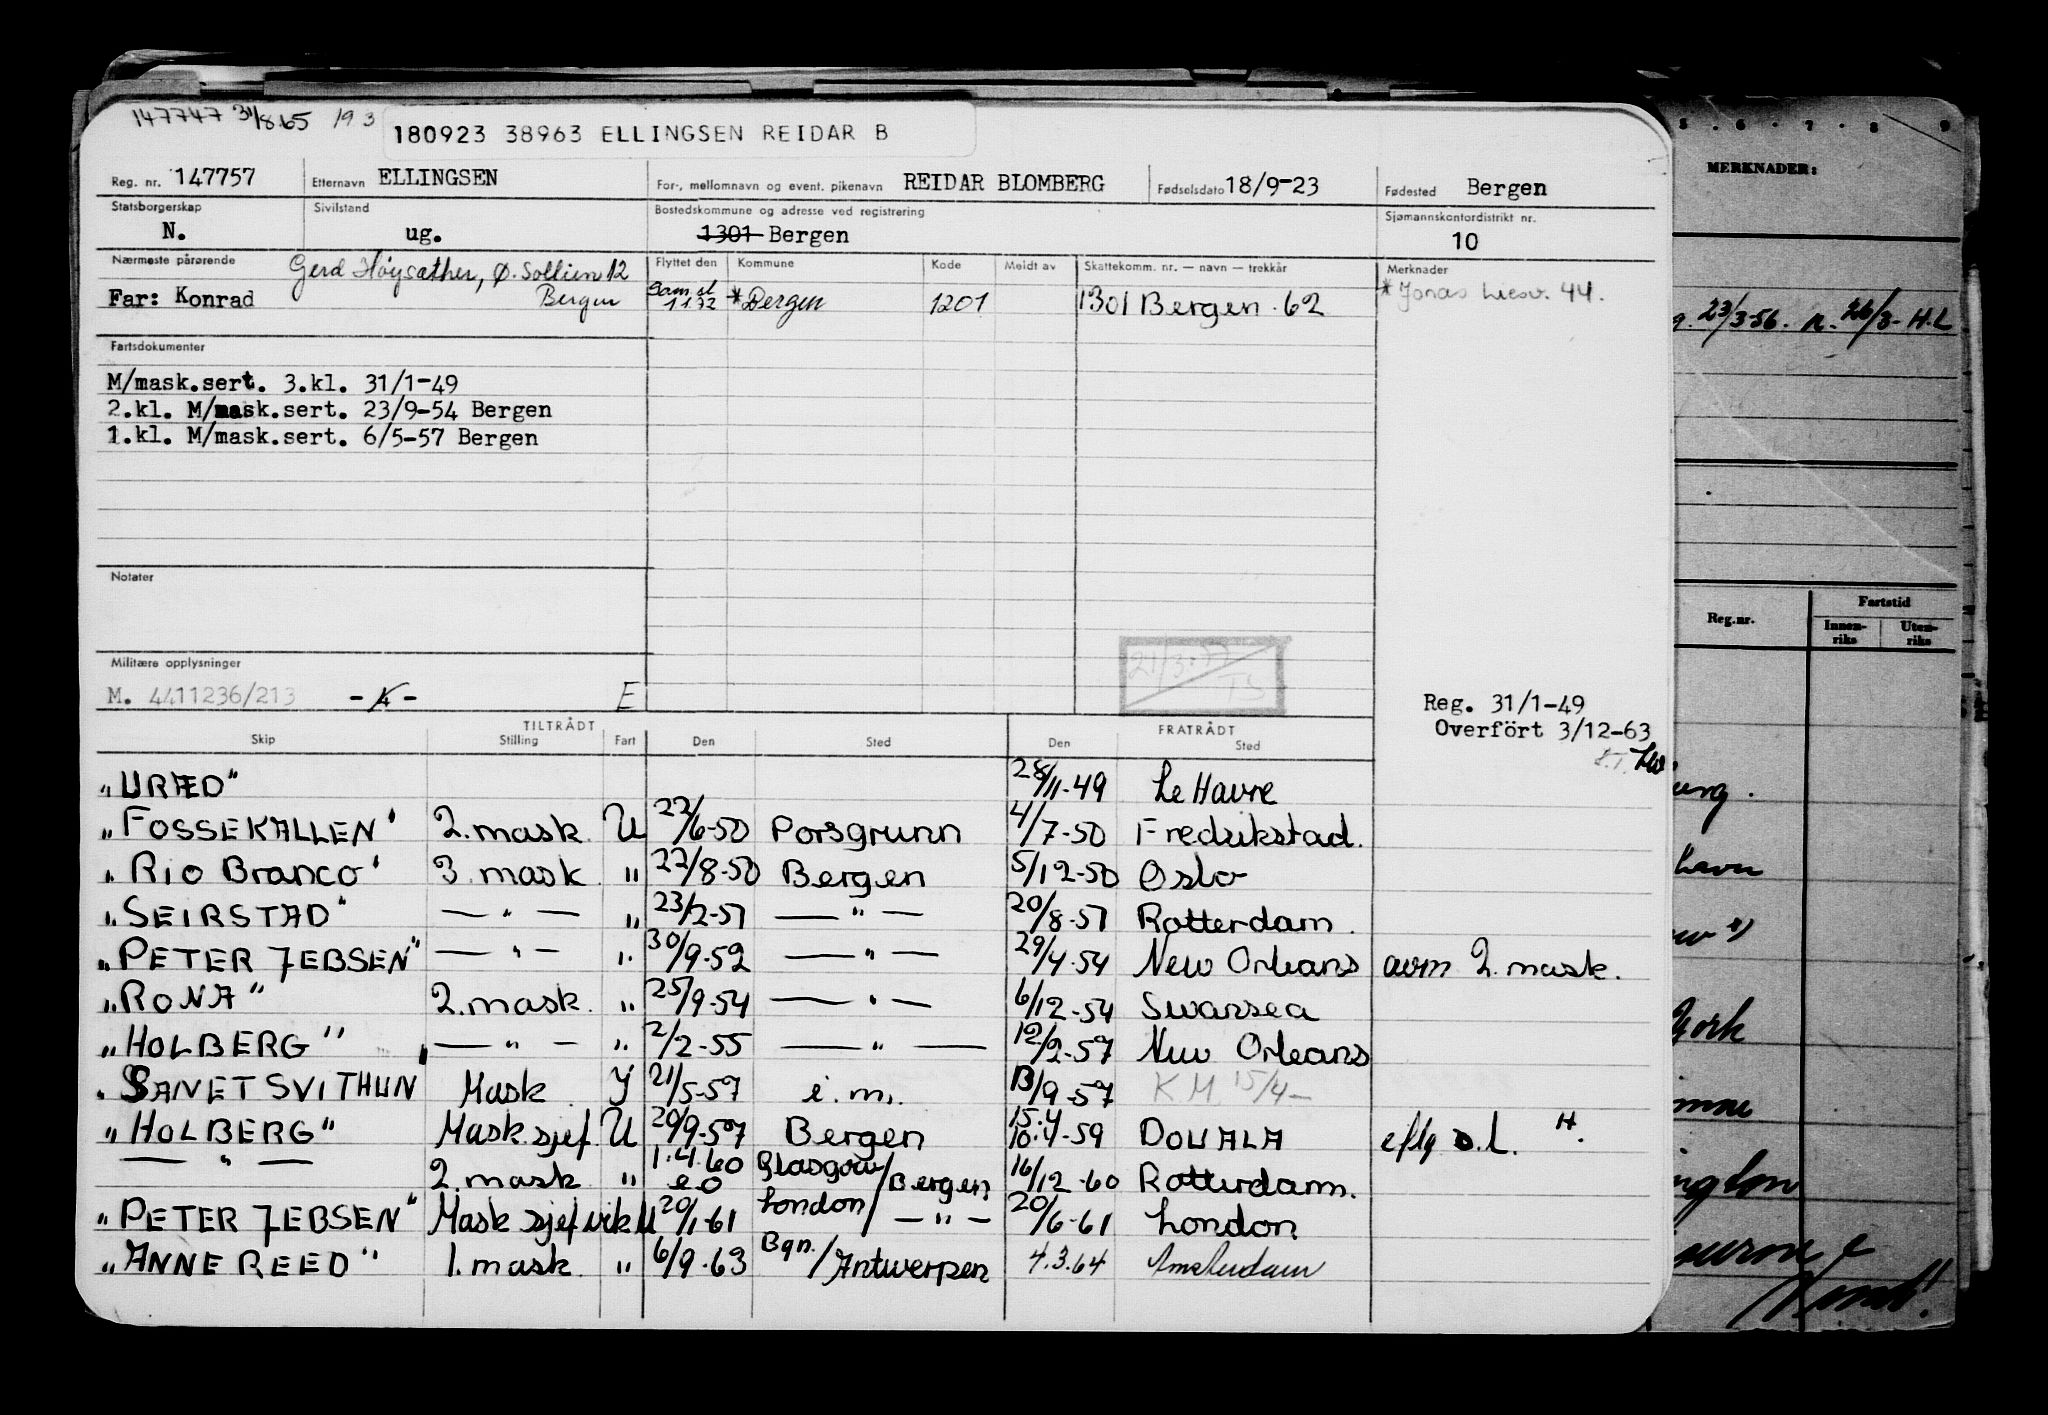 147747 31/8.65 19 3
180923 38963 ELLINGSEN REIDAR B
Reg. nr. 147757 Etternavn ELLINGSEN For-, mellomnavn og event. pikenavn REIDAR BLOMBERG Fødselsdato 18/9-23 Fødested Bergen
Statsborgerskap Sivilstand Bostedskommune og adresse ved registrering Sjømannskontordistrikt nr.
N. ug. 1301 Bergen 10
Nærmeste pårørende Gerd Høysæther, Ø. Sollien 12 Flyttet den Kommune Kode Meldt av Skattekomm. nr. — navn — trekkår Merknader
Far: Konrad Bergen 1.1.72 *Bergen 1201 1301 Bergen . 62 *Jonas Liesv. 44.
Fartsdokumenter
M/mask.sert. 3.kl. 31/1-49
2.kl. M/mask.sert. 23/9-54 Bergen
1.kl. M/mask.sert. 6/5-57 Bergen
Notater
Militære opplysninger
21/3-77 TS
M. 4411236/213 -4- E
Reg. 31/1-49
Overfört 3/12-63
TILTRÅDT FRATRÅDT
Skip Stilling Fart Den Sted Den Sted
"URÆD" 28/11-49 Le Havre
"FOSSEKALLEN" 2. mask. U 22/6-50 Porsgrunn 4/7-50 Fredrikstad.
"Rio Branco" 3. mask. " 22/8-50 Bergen 5/12-50 Oslo
"SEIRSTAD" — " — " 23/2-51 — " — 20/8-51 Rotterdam.
"PETER JEBSEN" — " — " 30/9-52 — " — 29/4-54 New Orleans avm 2. mask.
"RONA" 2. mask. " 25/9-54 — " — 6/12-54 Swansea
"HOLBERG" — " — " 2/2-55 — " — 12/2-57 New Orleans
"SANCT SVITHUN" Mask. J 21/5-57 i.m. 13/9-57 K.M. 15/4-
"HOLBERG" Mask.sjef. U 20/9-57 Bergen 15.4 10.4-59 DOUALA eftg s.l. H.
— " — 2. mask. " 1.4.60 eo Glasgow/Bergen 16/12-60 Rotterdam.
"PETER JEBSEN" Mask sjef vik U 20/1-61 London/— " — 20/6-61 London
"ANNE REED" 1. mask. " 6/9-63 Bgn./Antwerpen 4.3.64 Amsterdam
5 . 6 . 7 . 8 9
MERKNADER:
23/3-56. n. 26/3- H.L
Reg.nr. Fartstid
Innen-riks Uten-riks